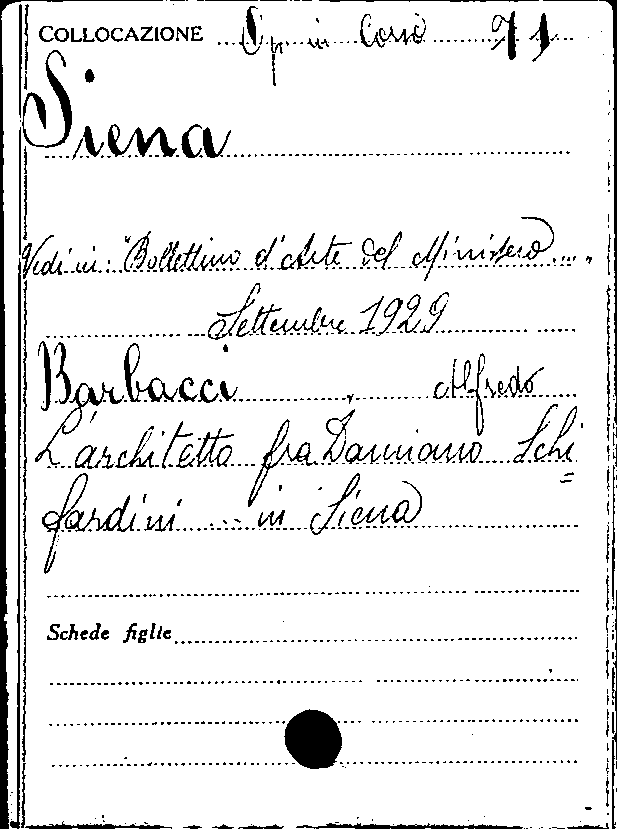 COLLOCAZIONE Op. in Corso 71
Siena
Vedi in: "Bollettino d'Arte del Ministero....„
Settembre 1929
Barbacci, Alfredo
L'architetto fra Damiano Schi=
fardini ... in Siena
Schede figlie